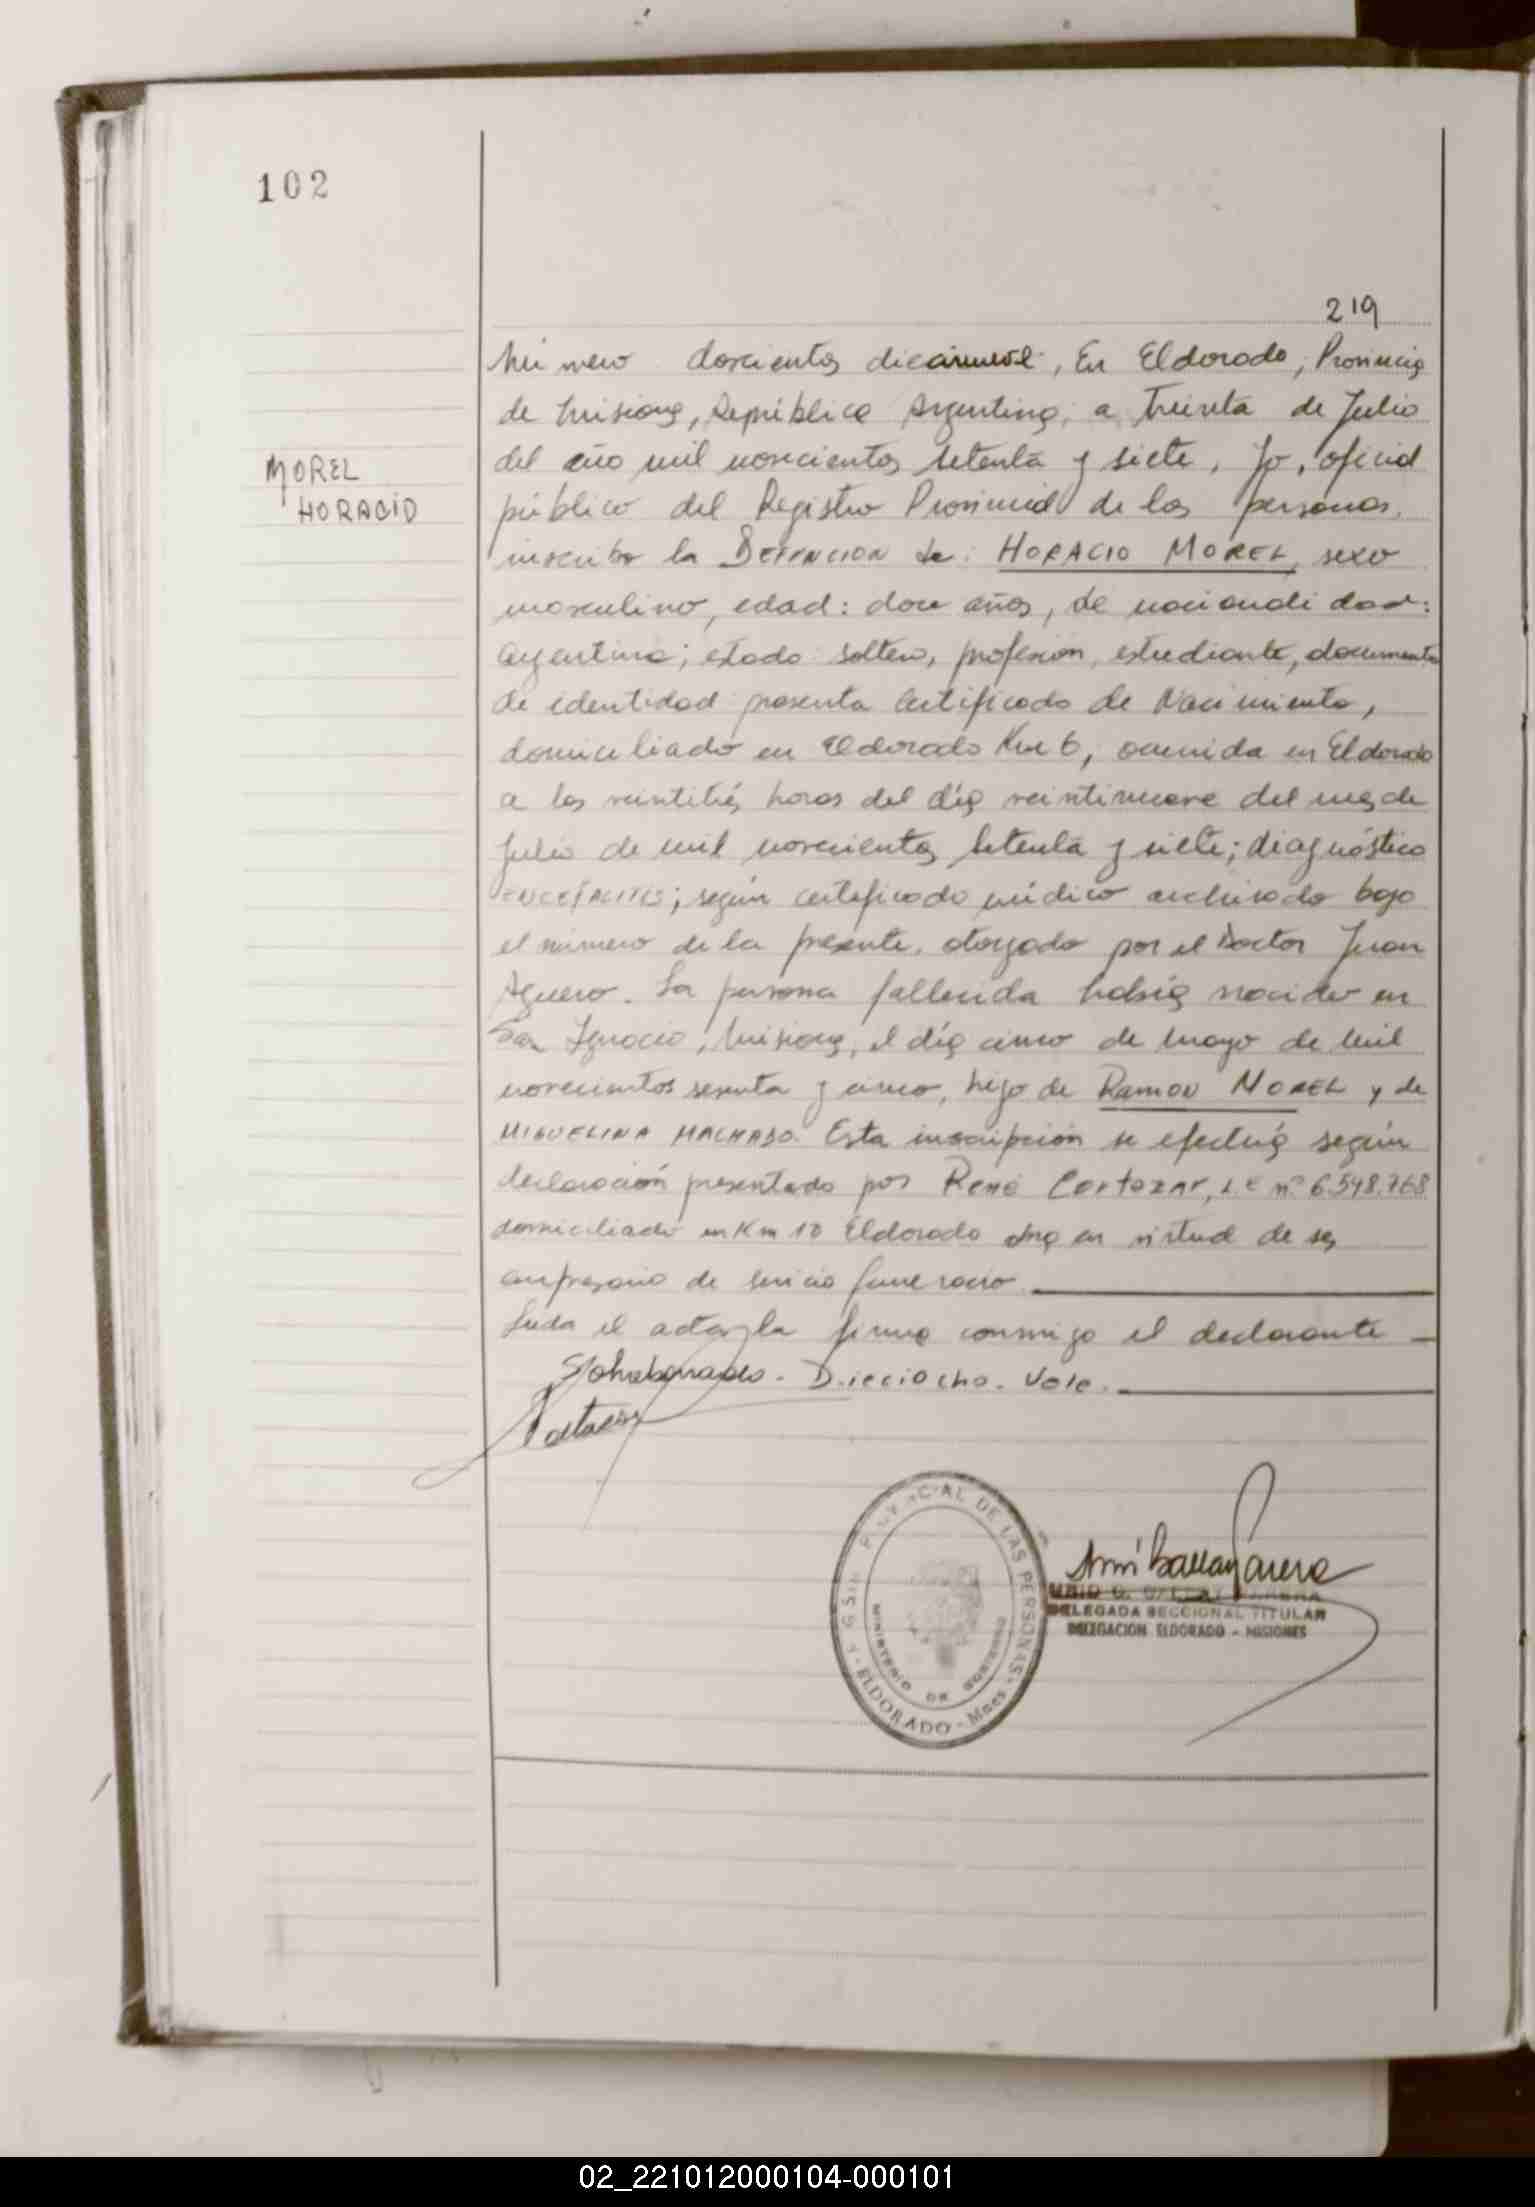 102
219
MOREL
HORACIO
Número doscientos diecinueve, En Eldorado, Provincia
de Misiones, República Argentina, a treinta de Julio
del año mil novecientos setenta y siete, Yo, oficial
público del Registro Provincial de las personas,
inscribo la DEFUNCION de: HORACIO MOREL, sexo
masculino, edad: doce años, de nacionalidad:
argentina; estado soltero, profesión, estudiante, documento
de identidad presenta certificado de Nacimiento,
domiciliado en Eldorado Km 6, ocurrida en Eldorado
a las veintitrés horas del día veintinueve del mes de
Julio de mil novecientos setenta y siete; diagnóstico
ENCEFALITIS; según certificado médico archivado bajo
el número de la presente, otorgado por el Doctor Juan
Aguero. La persona fallecida había nacido en
San Ignacio, Misiones, el día cinco de mayo de mil
novecientos sesenta y cinco, hijo de RAMON MOREL y de
MIGUELINA MACHADO. Esta inscripción se efectúa según
declaración presentada por René Cortazar, L E nº 6.548.768
domiciliado en Km 10 Eldorado obra en virtud de ser
empresario de servicio funerario
Leída el acta, la firma conmigo el declarante
S/ohraborrado - Dieciocho. Vale.
PROVINCIAL DE LAS PERSONAS
MINISTERIO DE GOBIERNO
ELDORADO - Mnes
DELEGADA SECCIONAL TITULAR
DELEGACION ELDORADO - MISIONES
02_221012000104-000101